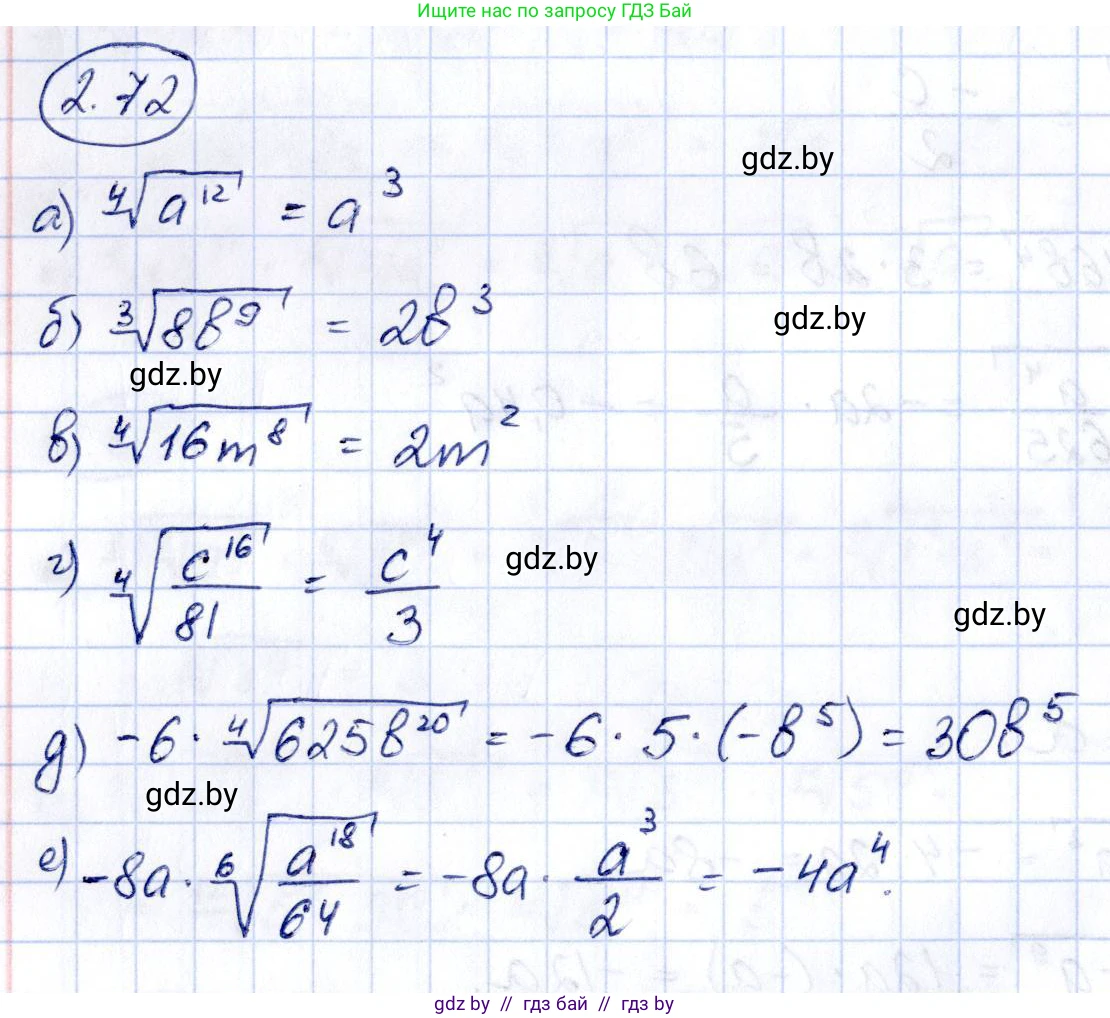 Ищите нас по запросу ГДЗ Бай
2.72
gdz.by
а) ∜(a¹²) = a³
б) ∛(8b⁹) = 2b³
gdz.by
gdz.by
в) ∜(16m⁸) = 2m²
г) ∜(c¹⁶/81) = c⁴/3
gdz.by
gdz.by
д) -6 · ∜(625b²⁰) = -6 · 5 · (-b⁵) = 30b⁵
gdz.by
е) -8a · ⁶√(a¹⁸/64) = -8a · a³/2 = -4a⁴.
gdz.by // гдз бай // gdz.by